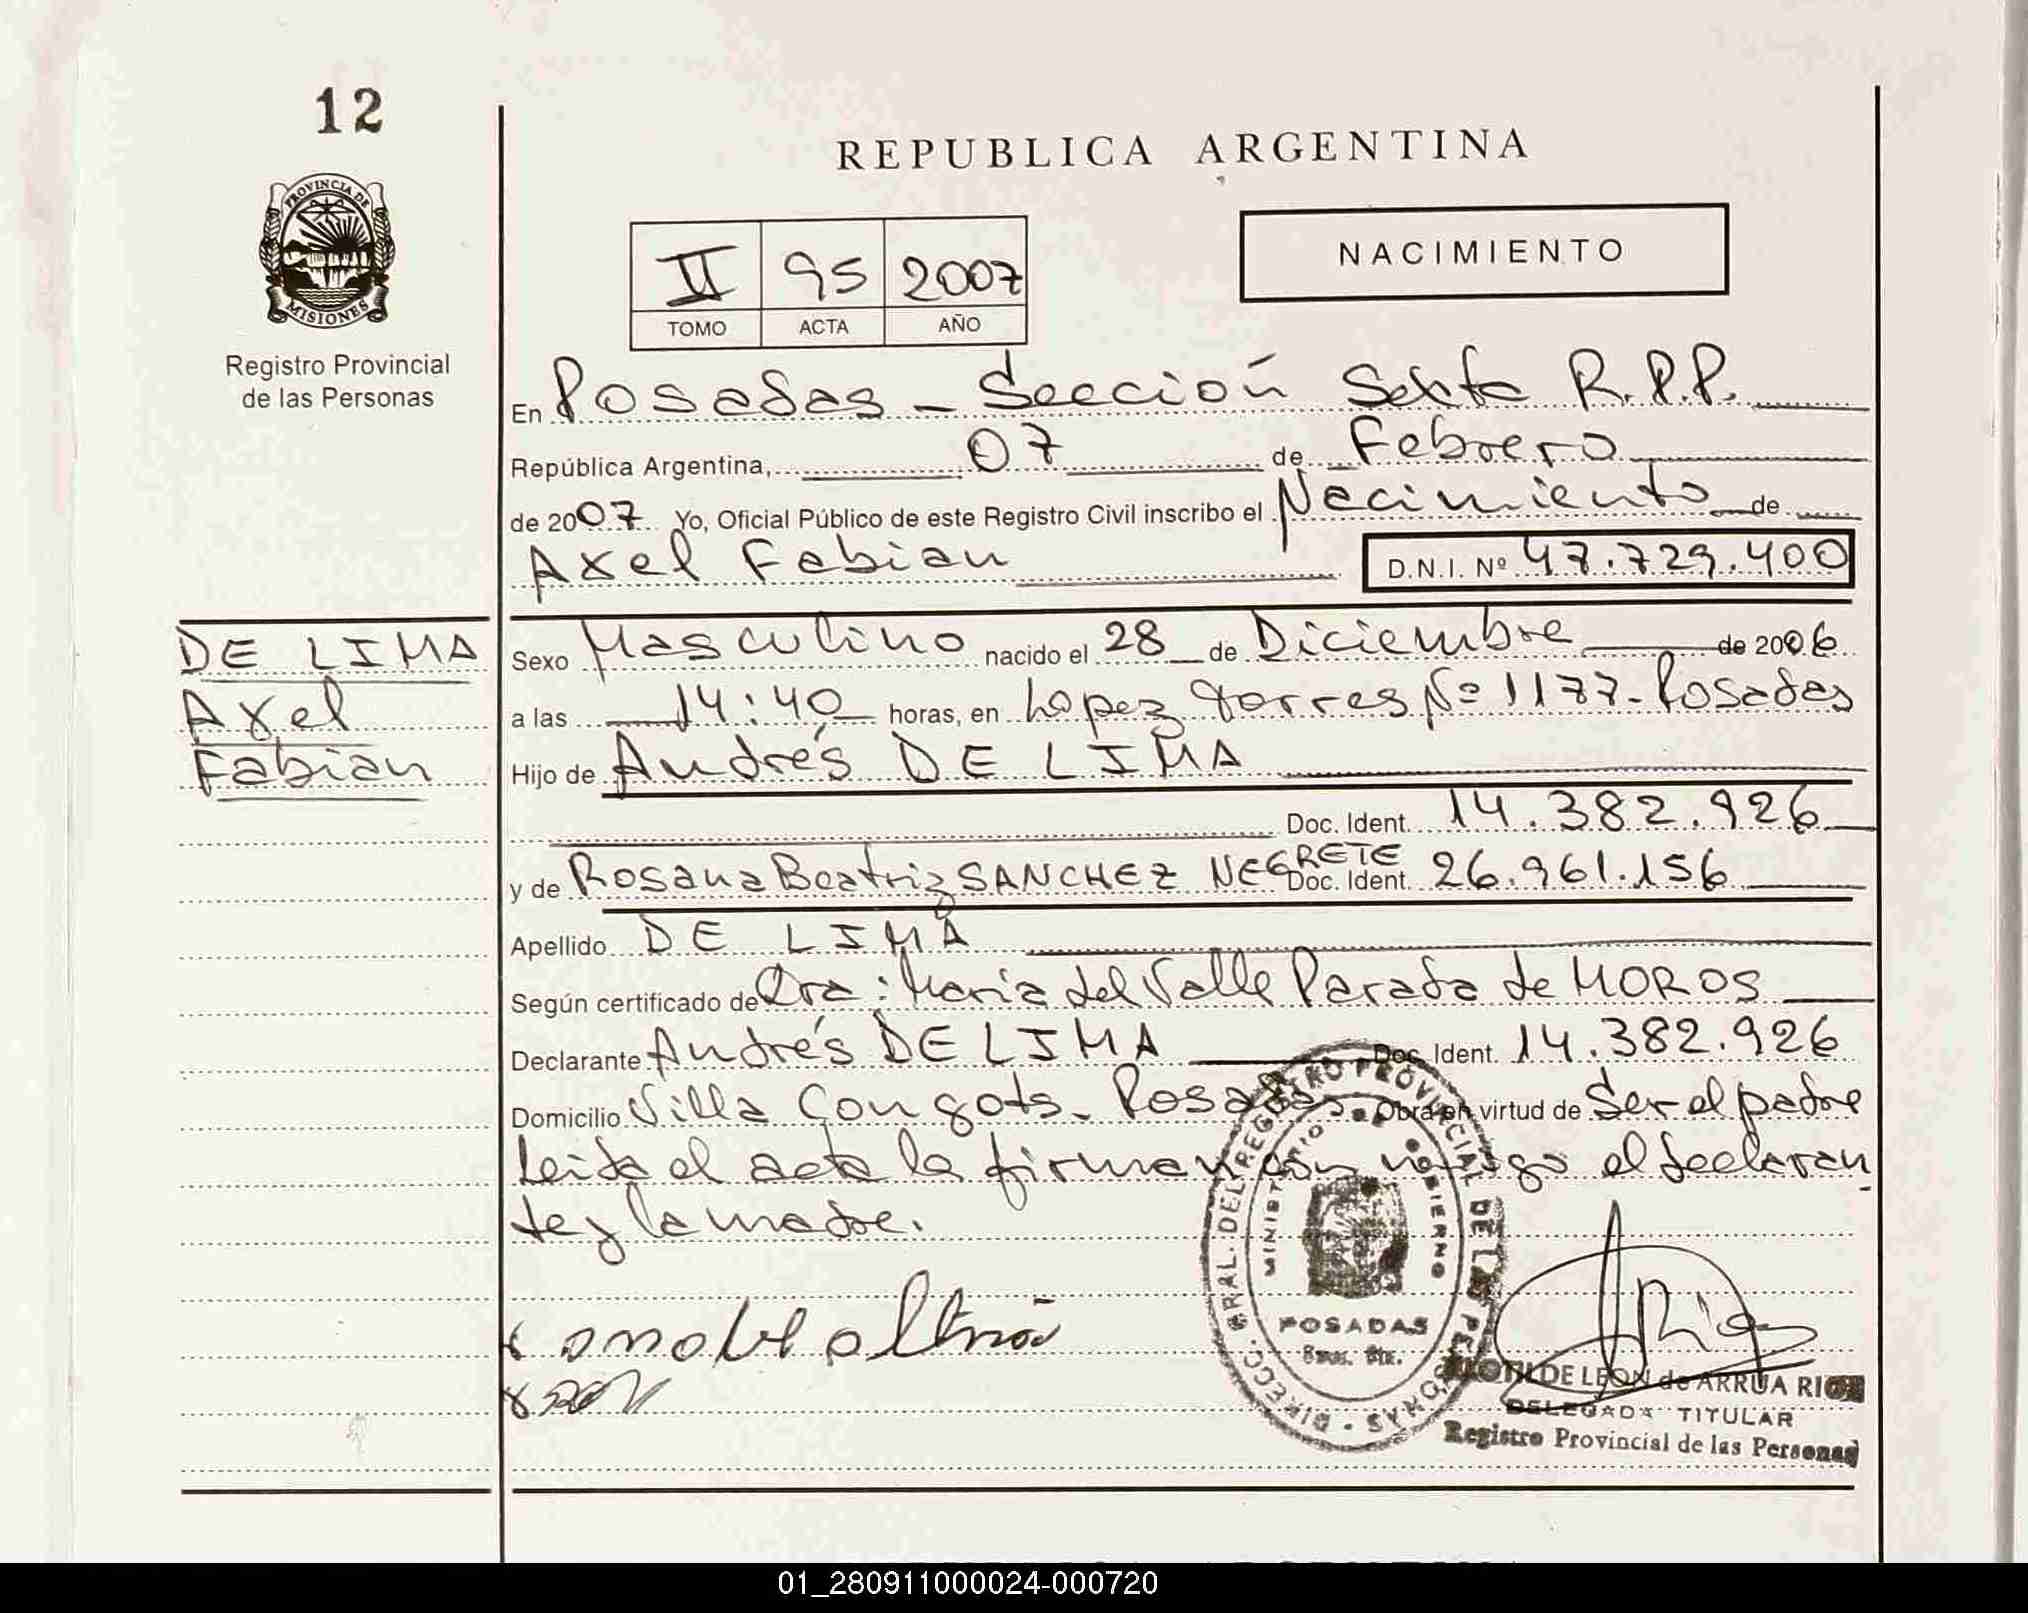 12
REPUBLICA ARGENTINA
PROVINCIA DE
MISIONES
Registro Provincial
de las Personas
NACIMIENTO
II 95 2007
TOMO ACTA AÑO
En Posadas - Sección Sexta R.P.P.
República Argentina, 07 de Febrero
de 2007 Yo, Oficial Público de este Registro Civil inscribo el Nacimiento de
Axel Fabian D.N.I. Nº 47.729.400
DE LIMA
Axel
Fabian
Sexo Masculino nacido el 28 de Diciembre de 2006
a las 14:40 horas, en Lopez Torres Nº 1177 - Posadas
Hijo de Andrés DE LIMA
Doc. Ident. 14.382.926
y de Rosana Beatriz SANCHEZ NEGRETE Doc. Ident. 26.961.156
Apellido DE LIMA
Según certificado de Dra: Maria del Valle Parada de MOROS
Declarante Andrés DE LIMA Doc. Ident. 14.382.926
Domicilio Villa Cou gots. Posadas. Obra en virtud de Ser el padre
Leida el acta la firman con migo el declaran
te y la madre.
DIRECC. GRAL. DEL REGISTRO PROVINCIAL DE LAS PERSONAS
MINISTERIO DE GOBIERNO
POSADAS
DE LEON de ARRUA RIOS
DELEGADA TITULAR
Registro Provincial de las Personas
01_280911000024-000720